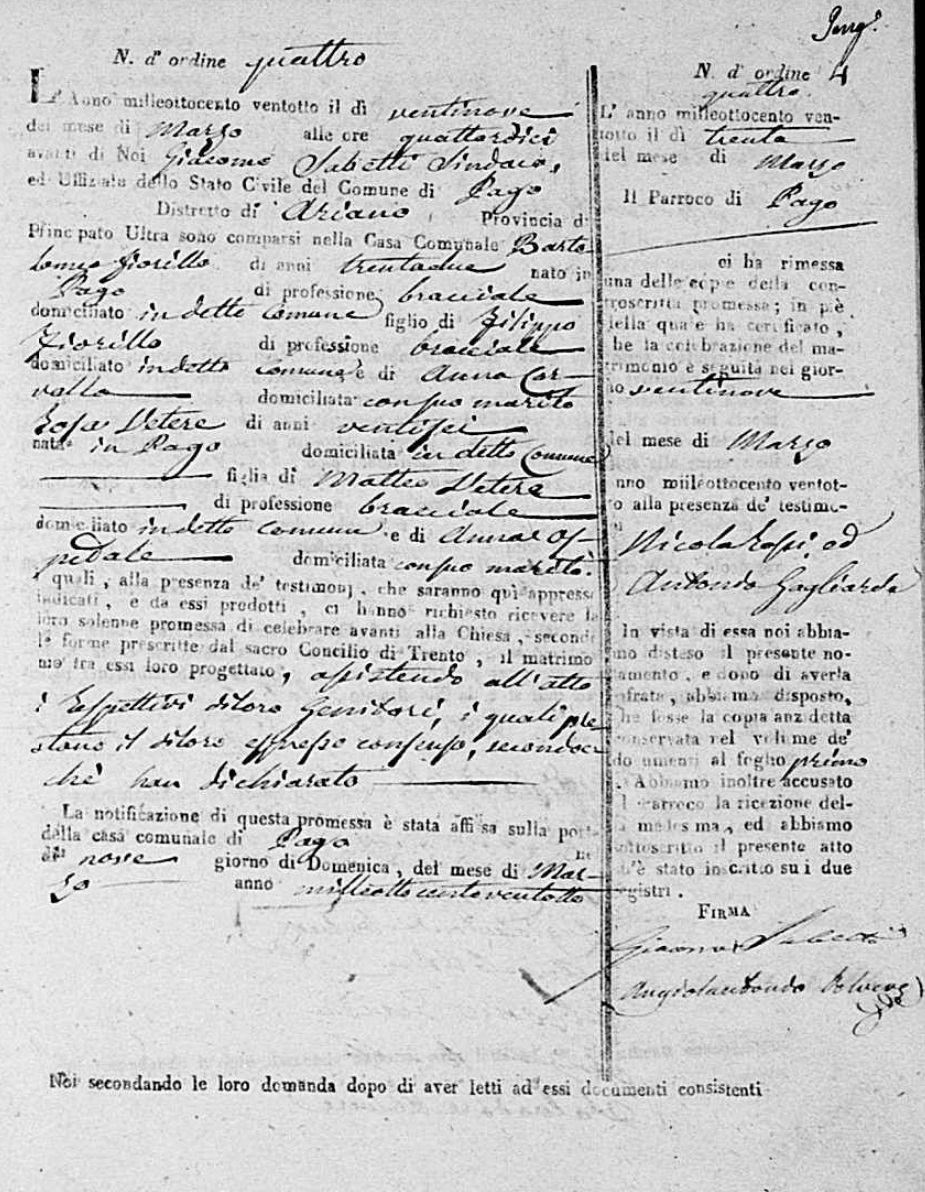 N. d' ordine quattro
L' Anno milleottocento ventotto il dì ventinove
del mese di Marzo alle ore quattordici
avanti di Noi Giacomo Sabetti Sindaco,
ed Uffiziale dello Stato Civile del Comune di Pago
Distretto di Ariano, Provincia di
Principato Ultra sono comparsi nella Casa Comunale Barto
lomeo Fiorillo di anni trentadue nato in
Pago di professione bracciale
domiciliato in detto comune figlio di Filippo
Fiorillo di professione bracciale
domiciliato in detto comune e di Anna Car-
vallo domiciliata con suo marito
Rosa Vetere di anni ventisei
nata in Pago domiciliata in detto Comune
figlia di Matteo Vetere
di professione bracciale
domiciliato in detto comune e di Anna Os-
pedale domiciliata con suo marito.
I quali, alla presenza de' testimonj, che saranno qui appresso
indicati, e da essi prodotti, ci hanno richiesto ricevere la
loro solenne promessa di celebrare avanti alla Chiesa, secondo
le forme prescritte dal sacro Concilio di Trento, il matrimo
nio tra essi loro progettato, assistendo all' atto
i rispettivi di loro Genitori, i quali pre
stano il di loro espresso consenso, secondoc
chè han dichiarato
La notificazione di questa promessa è stata affissa sulla porta
della casa comunale di Pago
di nove giorno di Domenica, del mese di Mar-
zo anno milleottocentoventotto
N. d' ordine 4
quattro.
L' anno milleottocento ven-
totto il dì trenta
del mese di Marzo
Il Parroco di Pago
ci ha rimessa
una delle copie della con-
troscritta promessa; in piè
della quale ha certificato,
che la celebrazione del ma-
trimonio è seguita nel gior-
no ventinove
del mese di Marzo
anno milleottocento ventot-
to alla presenza de' testimo-
ni
Nicola Rossi, ed
Antonio Gagliarde
In vista di essa noi abbia-
mo disteso il presente no-
tamento, e dopo di averla
cifrata, abbiamo disposto,
che fosse la copia anzidetta
conservata nel volume de'
documenti al foglio primo
. Abbiamo inoltre accusato
al Parroco la ricezione del-
la medesima, ed abbiamo
sottoscritto il presente atto
ch'è stato inscritto su i due
registri.
FIRMA
Giacomo Sabetti
Noi secondando le loro domanda dopo di aver letti ad essi documenti consistenti